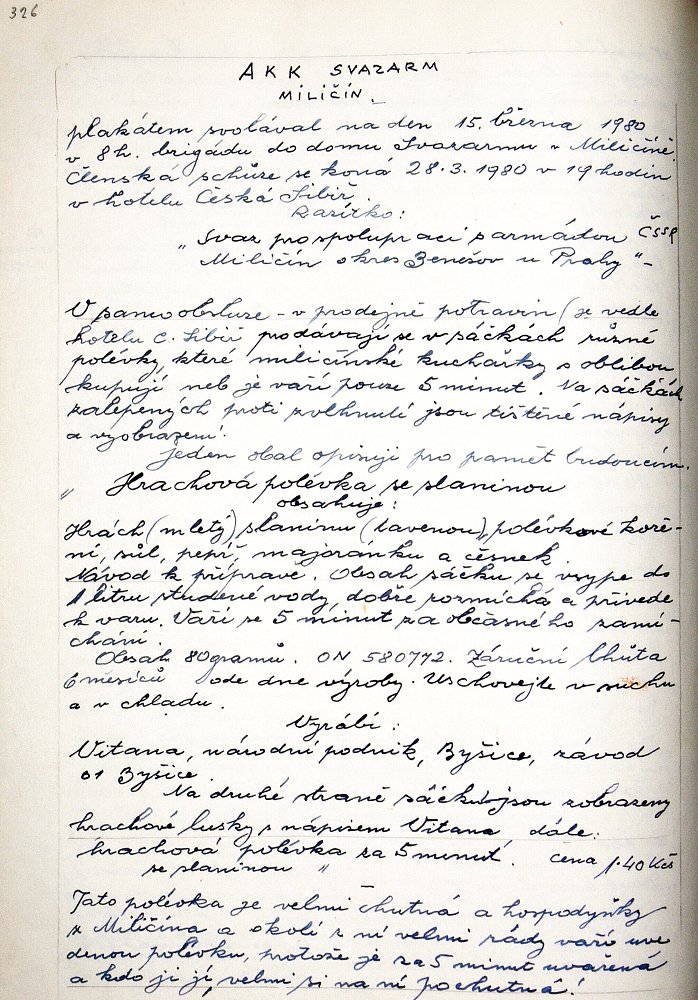 326
AKK SVAZARM
MILIČÍN.
plakátem svolával na den 15. března 1980
v 8 h. brigádu do domu Svazarmu v Miličíně.
Členská schůze se koná 28.3.1980 v 19 hodin
v hotelu Česká Sibiř.
Razítko:
„Svaz pro spolupraci s armádou ČSSR
Miličín okres Benešov u Prahy" –
V samoobsluze – v prodejně potravin (je vedle
hotelu Č. Sibiř prodávají se v sáčkách různé
polévky, které miličínské kuchařky s oblibou
kupují, neb je vaří pouze 5 minut. Na sáčkách
zalepených proti zvlhnutí jsou tištěné nápisy
a vyobrazení.
Jeden obal opisuji pro pamět budoucím.
„Hrachová polévka se slaninou
obsahuje:
Hrách (mletý), slaninu (tavenou), polévkové koře-
ní, sůl, pepř, majoránku a česnek.
Návod k přípravě. Obsah sáčku se vsype do
1 litru studené vody, dobře rozmíchá a přivede
k varu. Vaří se 5 minut za občasného zamí-
chání.
Obsah 80 gramů. ON 580772. Záruční lhůta
6 měsíců ode dne výroby. Uschovejte v suchu
a v chladu.
Vyrábí:
Vitana, národní podnik, Byšice, závod
01 Byšice.
Na druhé straně sáčku jsou zobrazeny
hrachové lusky s nápisem Vitana dále:
hrachová polévka za 5 minut. cena 1.40 Kčs
se slaninou "
Tato polévka je velmi chutná a hospodyňky
z Miličína a okolí z ní velmi rády vaří uve
denou polévku, protože je za 5 minut uvařená
a kdo ji jí, velmi si na ní pochutná!